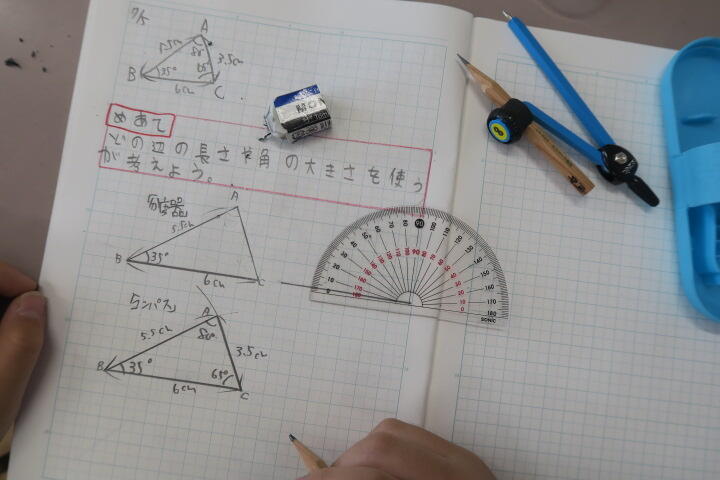 7/5
A
5.5cm
80°
3.5cm
B
35°
65°
6cm
C
MONO
めあて
どの辺の長さや角の大きさを使う
か考えよう。
分度器
A
5.5cm
B
35°
6cm
C
コンパス
A
5.5cm
80°
3.5cm
B
35°
65°
6cm
C
0 10 20 30 40 50 60 70 80 90 100 110 120 130 140 150 160 170 180
SONIC